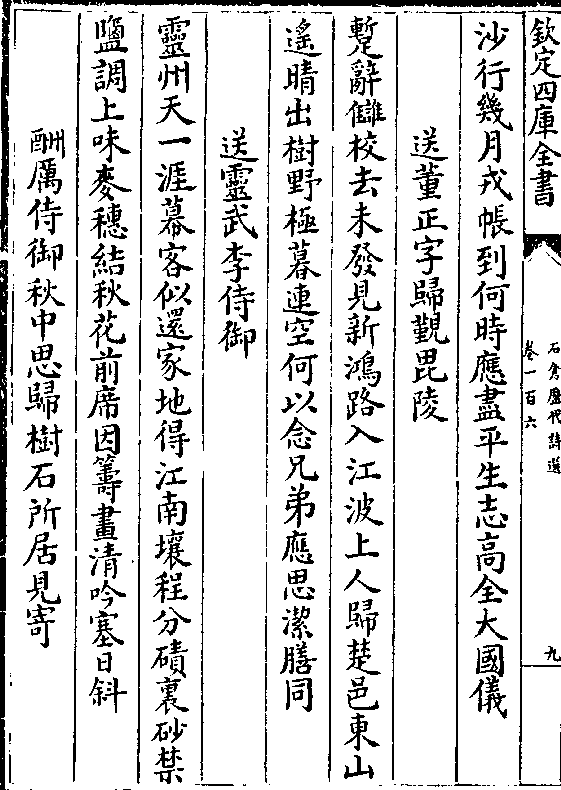 欽定四庫全書
石倉歷代詩選
卷一百六
九
沙行幾月戎帳到何時應盡平生志高全大國儀
送董正字歸覲毘陵
蹔辭讎校去未發見新鴻路入江波上人歸楚邑東山
遙晴出樹野極暮連空何以念兄弟應思潔膳同
送靈武李侍御
靈州天一涯幕客似還家地得江南壤程分磧裏砂禁
鹽調上味麥穗結秋花前席因籌畫清吟塞日斜
酬厲侍御秋中思歸樹石所居見寄